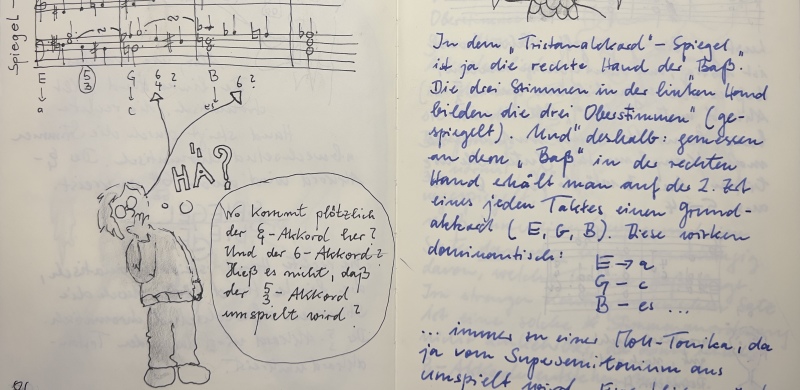 Spiegel
E 5/3 G 6/4 ? B 6?
a c es
HÄ?
Wo kommt plötzlich
der 6/4-Akkord her?
Und der 6-Akkord?
Hieß es nicht, daß
der 5/3-Akkord
umspielt wird?
In dem „Tristanakkord"-Spiegel
ist ja die rechte Hand der „Baß".
Die drei Stimmen in der linken Hand
bilden die drei „Oberstimmen" (ge-
spiegelt). Und deshalb: gemessen
an dem „Baß" in der rechten
Hand erhält man auf der 2. Zeit
eines jeden Taktes einen Grund-
akkord (E, G, B). Diese wirken
dominantisch:
E → a
G – c
B – es ...
... immer zu einer Moll-Tonika, da
ja vom Supersemitonium aus
umspielt wird.